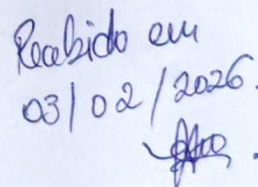 Recebido em
03/02/2026.